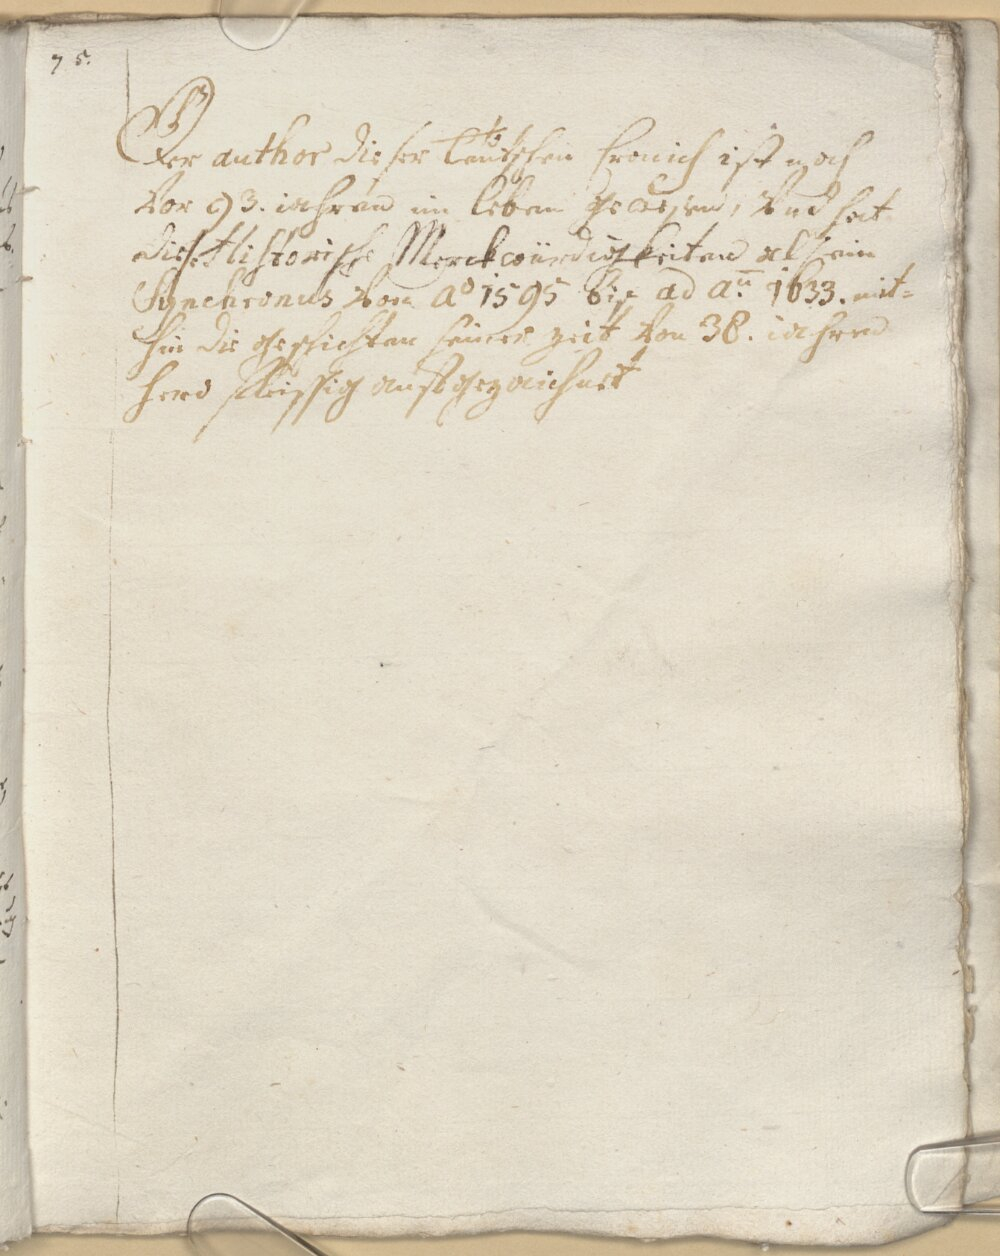 75.
Der author dieser teutschen Cronich ist noch
vor 93. iahren im leben gewesen, vnd hat
dise Historische Merckwürdigkeiten als ein
Synchronus von Aº 1595 biß ad aⁿ. 1633. mit=
hin die geschichten seiner zeit von 38. iahren
hero fleissig aufgezaichnet